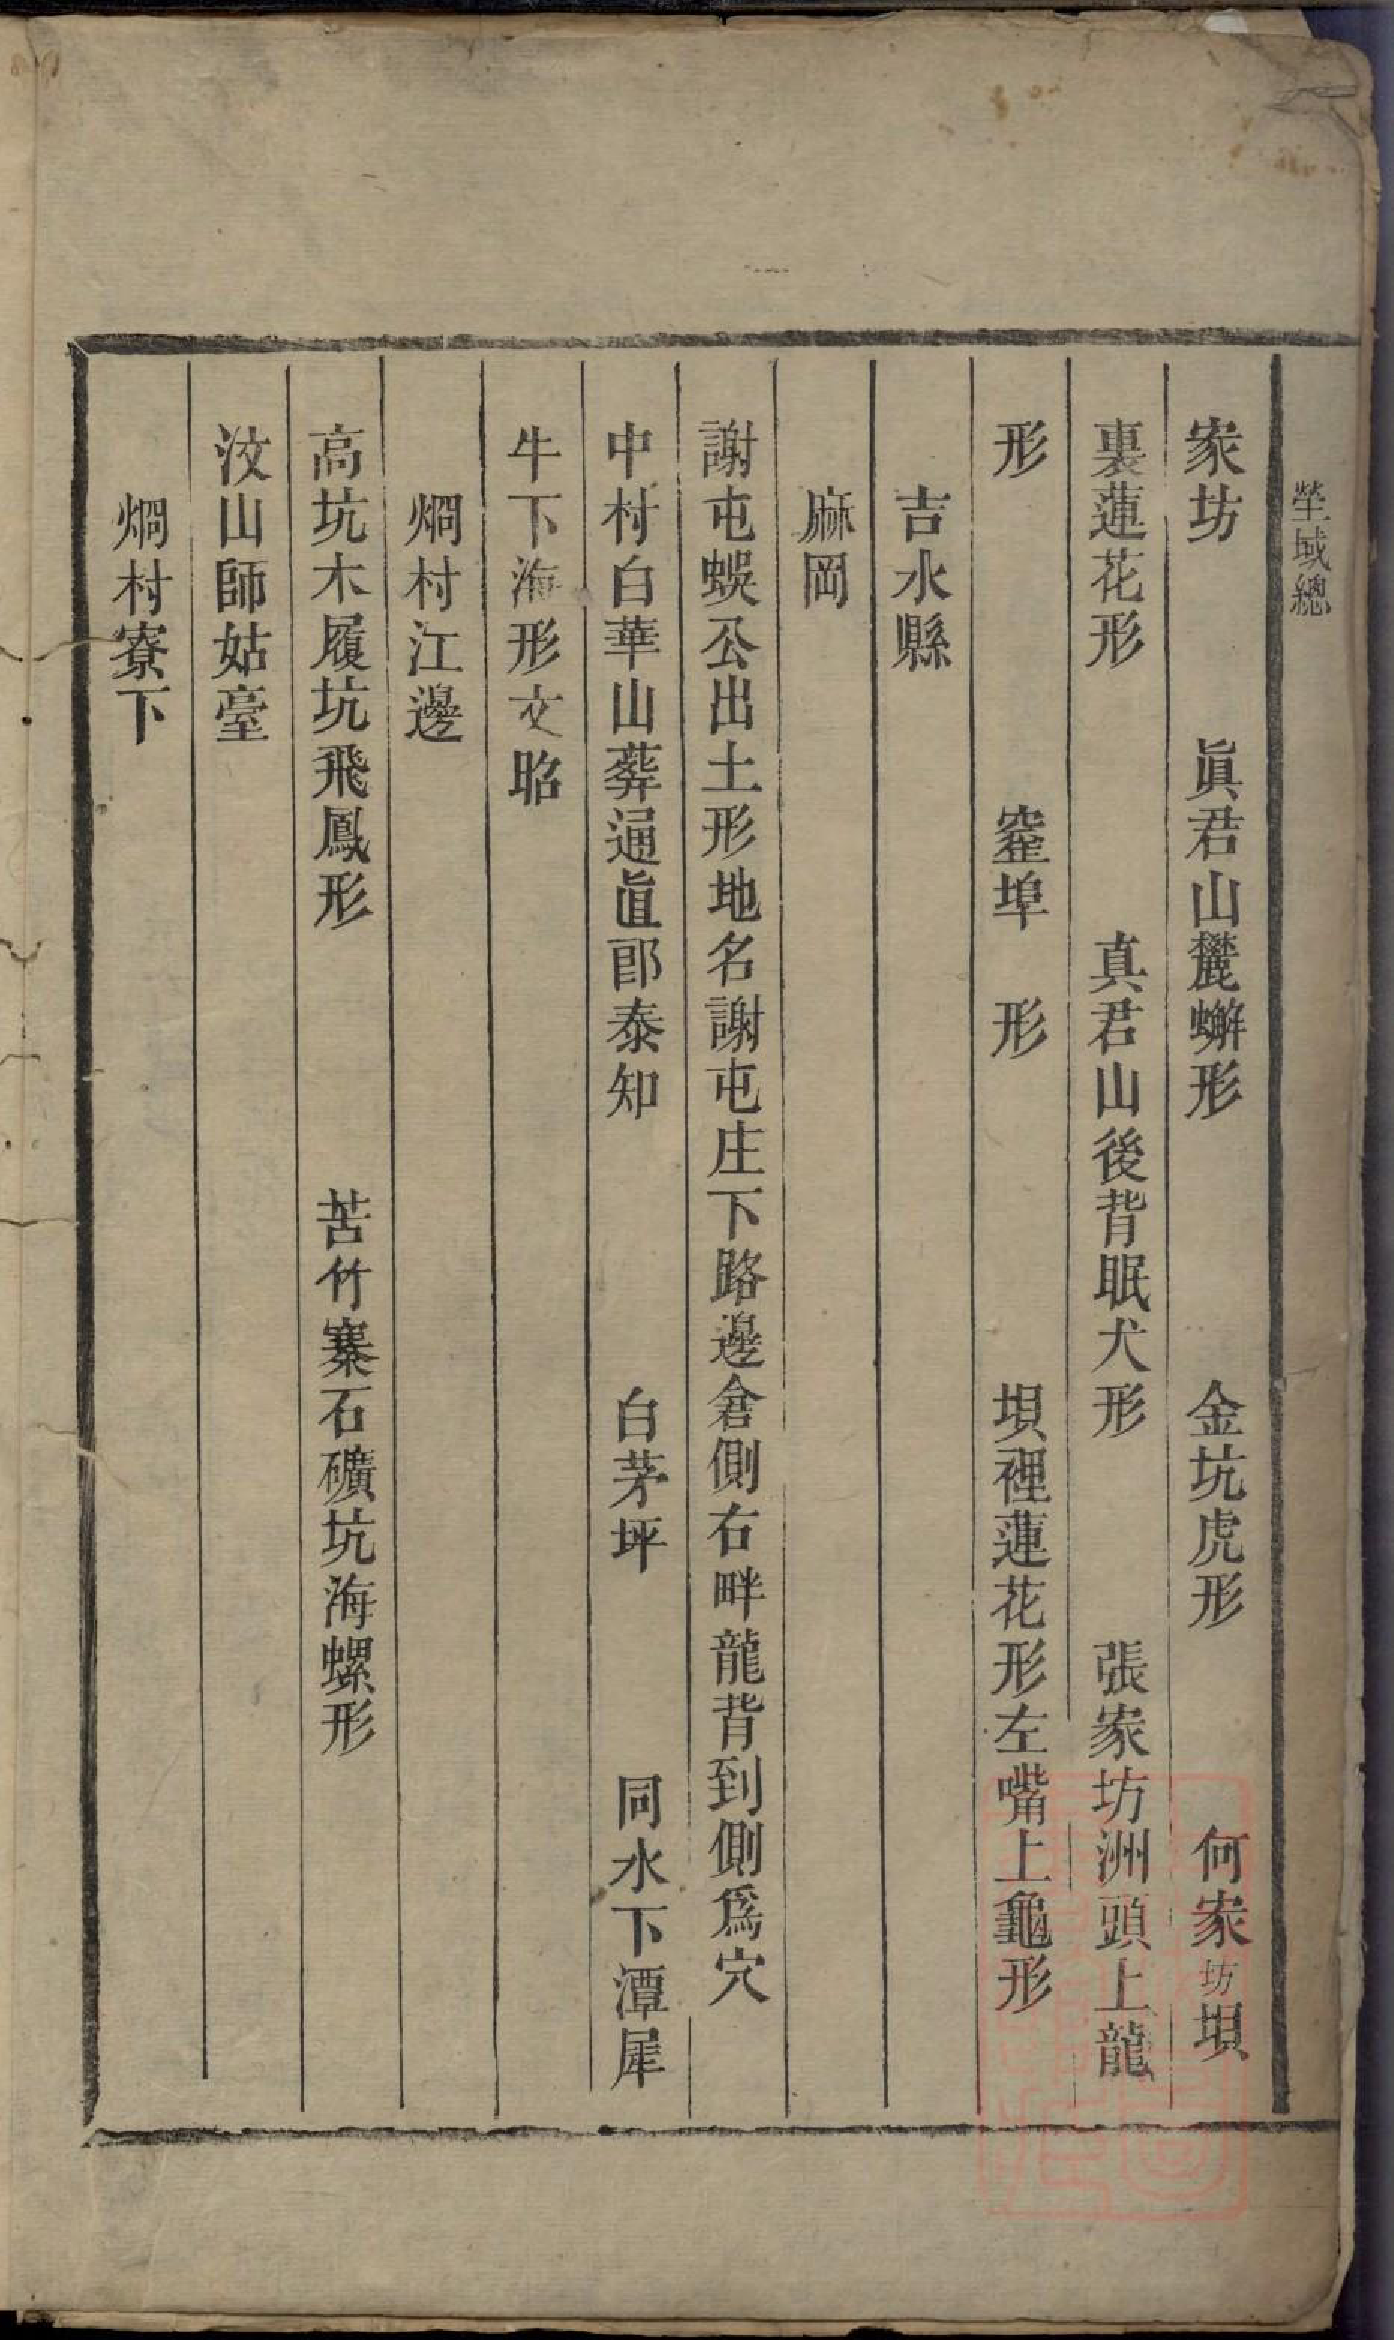 塋域總
家坊　眞君山麓蠏形　金坑虎形　何家坊垻
裏蓮花形　真君山後背眠犬形　張家坊洲頭上龍
形　窰埠　形　垻裡蓮花形左嘴上龜形
吉水縣
麻岡
謝屯蜈公出土形地名謝屯庄下路邊倉側右畔龍背到側爲穴
中村白華山葬通眞郎泰知　白茅坪　同水下潭犀
牛下海形文昭
烱村江邊
高坑木履坑飛鳳形　苦竹寨石礦坑海螺形
汶山師姑臺
烱村寮下